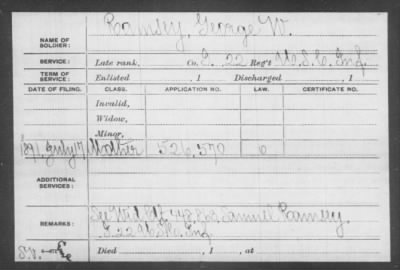 NAME OF SOLDIER: Ramsey, George W.
SERVICE: Late rank, Co. E. 22 Reg't U.S.C. Inf.
TERM OF SERVICE: Enlisted , 1 Discharged , 1
DATE OF FILING. CLASS. APPLICATION NO. LAW. CERTIFICATE NO.
Invalid,
Widow,
Minor,
1891, July 17 Mother 526,570
ADDITIONAL SERVICES:
See Wid. 448,863 Samuel Ramsey.
REMARKS: E. 22 U.S.C. Inf.
Died , 1 , at